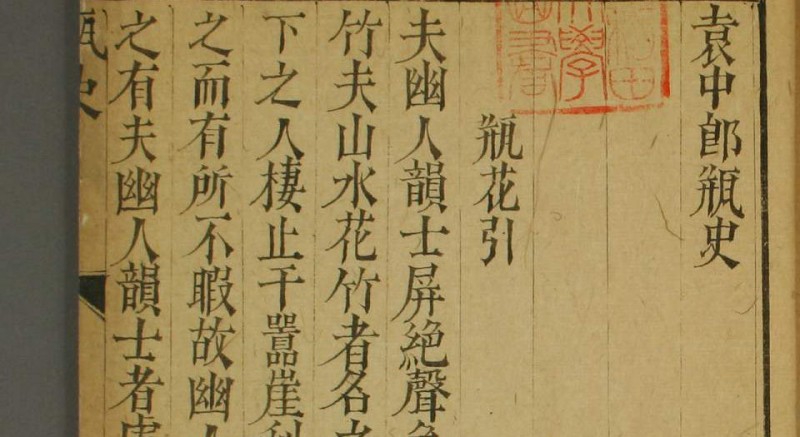 袁中郎瓶史
瓶花引
夫幽人韻士屏絶聲
竹夫山水花竹者名之
下之人棲止于囂崖利
之而有所不暇故幽人
之有夫幽人韻士者
瓶史